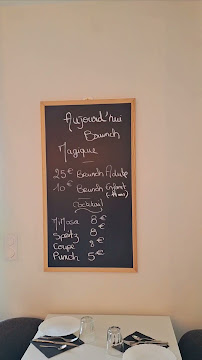 Aujourd'hui
Brunch
Magique
25€ Brunch Adulte
10€ Brunch Enfant
Cocktail
Mimosa 8€
Spritz 8
Coupe 8€
Punch 5€